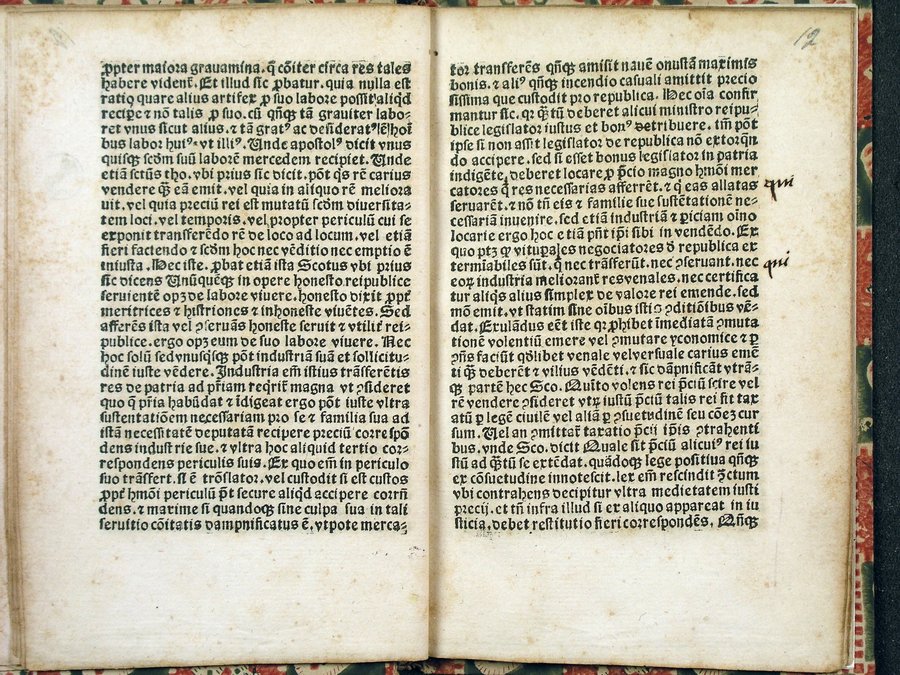 ꝓpter maiora grauamina. q̄ cōiter circa res tales
habere vident̄. Et illud sic ꝓbatur. quia nulla est
ratio quare alius artifex ꝑ suo labore possit aliqd
recipe ⁊ nō talis ꝓ suo. cū qn̄qꝫ tā grauiter labo-
ret vnus sicut alius. ⁊ tā grat⁹ ac desiderat⁹
bus labor hui⁹. vt illi⁹. Unde apostol⁹ dicit vnus
quisqꝫ scd̄m suū laborē mercedem recipiet. Unde
etiā sctūs tho. vbi prius sic dicit. pōt qs rē carius
vendere q̄ꝫ eā emit. vel quia in aliquo rē meliora
uit. vel quia preciū rei est mutatū scd̄m diuersita-
tem loci. vel temporis. vel propter periculū cui se
exponit transferēdo rē de loco ad locum. vel etiā
fieri faciendo ⁊ scd̄m hoc nec vēditio nec emptio ē
iniusta. Hec iste. ꝓbat etiā ista Scotus vbi prius
sic dicens Unūquēqꝫ in opere honesto reipublice
seruientē opꝫ de labore viuere. honesto dixit ꝓpt̄
meritrices ⁊ histriones ⁊ inhoneste viuētes. Sed
afferēs ista vel ꝯseruās honeste seruit ⁊ vtilit̄ rei-
publice. ergo opꝫ eum de suo labore viuere. Nec
hoc solū sed vnusqꝫ pōt industriā suā et sollicitu-
dinē iuste vēdere. Industria em̄ istius trāsferētis
res de patria ad p̄riam reqrit̄ magna vt ꝯsideret
quo q̄ p̄ria habūdat ⁊ īdigeat ergo pōt iuste vltra
sustentatiōem necessariam pro se ⁊ familia sua ad
istā necessitatē deputatā recipere preciū corre spō
dens industrie sue. ⁊ vltra hoc aliquid tertio cor-
respondens periculis suis. Ex quo em̄ in periculo
suo trāsfert. si ē trāslator. vel custodit si est custos
ꝓpt̄ hm̄oi periculū p̄t secure aliqd accipere corrn̄
dens. ⁊ maxime si quandoqꝫ sine culpa sua in tali
seruitio cōitatis dampnificatus ē. vtpote merca-
12
tōr transferēs qn̄qꝫ amisit nauē onustā maximis
bonis. ⁊ ali⁹ qn̄qꝫ incendio casuali amittit precio
sissima que custodit pro republica. Hec oīa confir
mantur sic. qꝛ q̄ꝫtū deberet alicui ministro reipu-
blice legislator iustus et bon⁹ retribuere. im̄ pōt
ipse si non asst̄ legislator de republica nō extorqn̄
do accipere. sed si esset bonus legislator in patria
indigēte deberet locare ꝓ p̄cio magno hm̄oi mer
catores q res necessarias afferrēt. ⁊ q eas allatas
seruarēt. ⁊ nō tn̄ eis ⁊ familie sue sustētationē ne-
cessariā inuenire. sed etiā industriā ⁊ ꝑiciam oīno
locarie ergo hoc ⁊ etiā pn̄t ip̄i sibi in vendēdo. Ex
quo ptꝫ qꝫ vituꝑales negociatores d̄ republica ex
termiabiles sūt. q nec trāsferūt. nec ꝯseruant. nec
eoꝝ industria meliorant̄ res venales. nec certifica
tur aliqs alius simplex de valore rei emende. sed
mō emit. vt statim sine oībus istis ꝯditiōibus vē-
dat. Exulādus eēt iste qꝛ ꝓhibet īmediatā ꝯmuta
tionē volentiū emere vel ꝯmutare yconomice ⁊ ꝑ
ꝯn̄s faciūt qd̄libet venale vel versuale carius emē
ti q̄ꝫ deberēt ⁊ vilius vēdēti. ⁊ sic dāpnificāt vtrā-
qꝫ partē hec Sco. Quīto volens rei p̄ciū scire vel
rē vendere ꝯsideret vtꝝ iustū p̄ciū talis rei sit tax
atū ꝑ legē ciuilē vel aliā ꝑ ꝯsuetudinē seu cōeꝫ cur
sum. Uel an ꝯmittat̄ taxatio p̄cii ip̄is ꝯtrahenti
bus. vnde Sco. dicit Quale sit p̄ciū alicui⁹ rei iu
stū ad q̄ꝫtū se extēdat. quādoqꝫ lege positiua qn̄qꝫ
ex cōsuetudine innotescit. lex em̄ rescindit ꝯtctum
vbi contrahens decipitur vltra medietatem iusti
precij. et tn̄ infra illud si ex aliquo appareat in iu
sticia. debet restitutio fieri correspondēs. Qn̄qꝫ
qui
qui